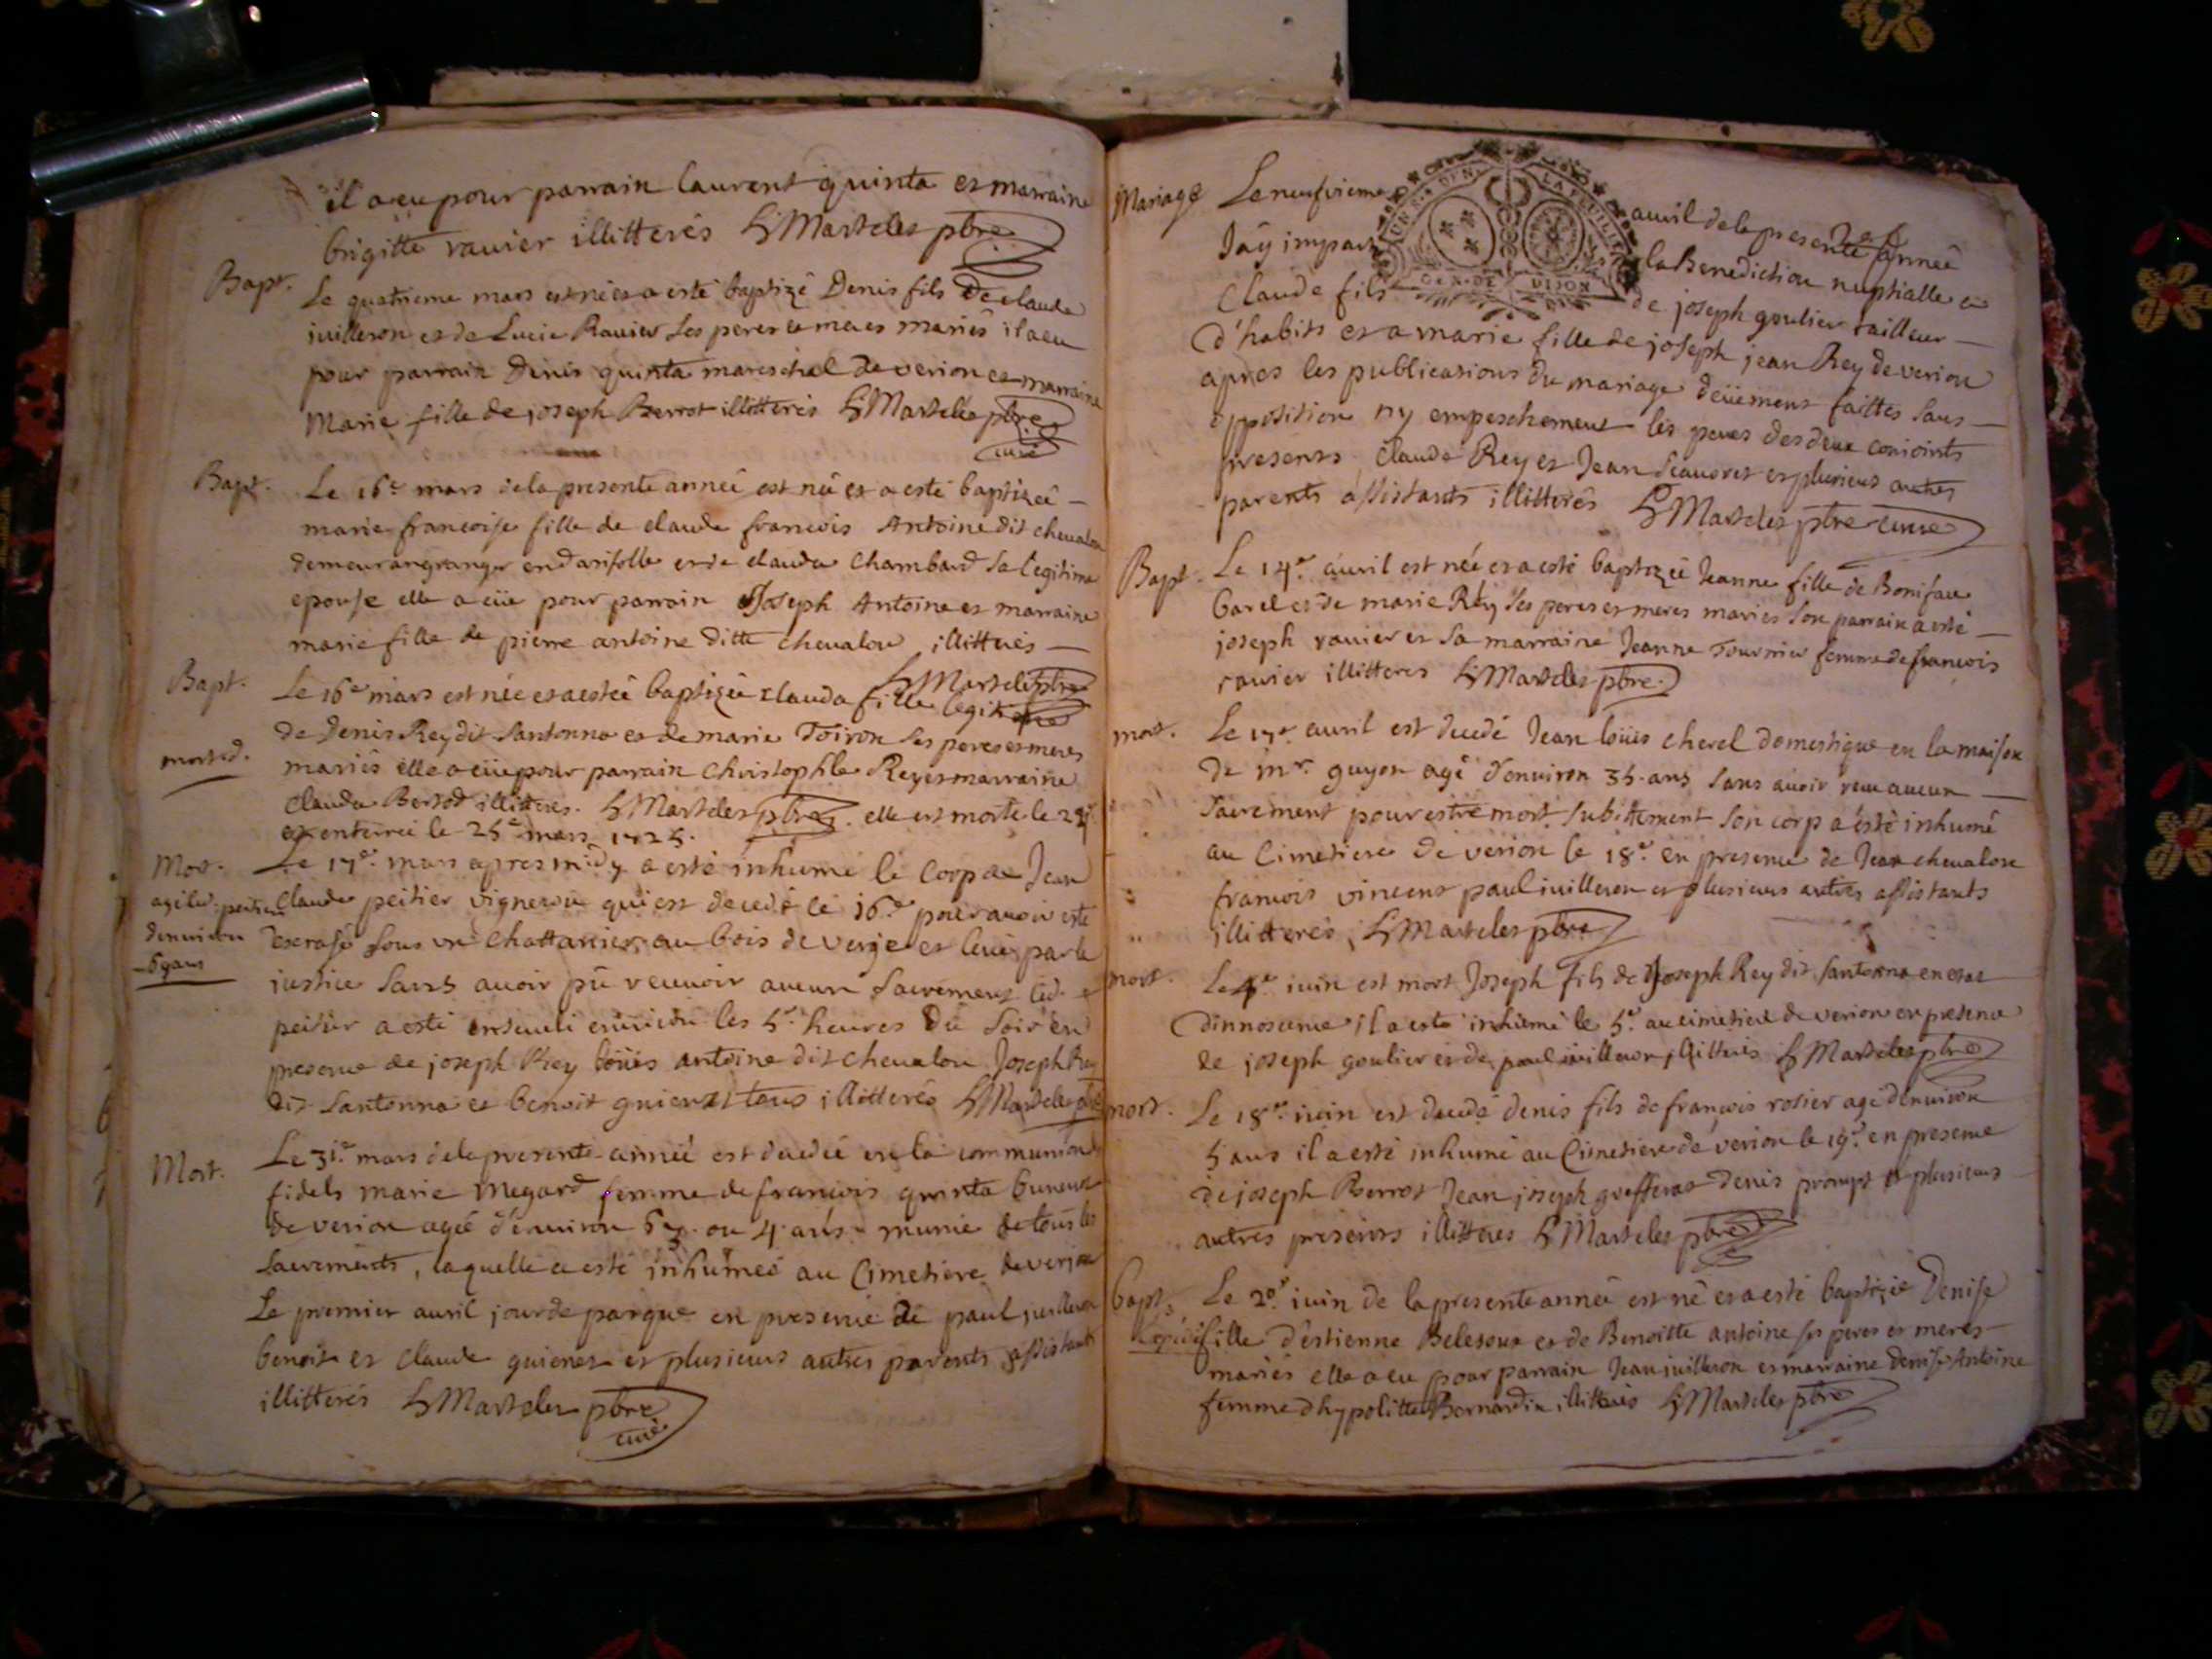 il a eu pour parrain laurent quinta et marraine
brigitte rauier illitterés Martelet pbre
Bapt.
Le quatrieme mars est né et a esté baptizé Denis fils de claude
iuilleron et de Lucie Rauier ses peres et meres mariés il a eu
pour parrain Denis quinta mareschal de verion et marraine
Marie fille de joseph Berrot illitterés Martelet pbre
curé
Bapt.
Le 16e mars de la presente anneé est neé et a esté baptizeé
marie francoise fille de claude francois Antoine dit cheualou
demeurant granger et de claudа chambard sa legitime
epouse elle a eüe pour parrain Joseph Antoine et marraine
marie fille de pierre antoine ditte cheualou illitterés
Martelet pbre
Bapt.
Le 16e mars est neé et a esteé baptizeé clauda fille legit
de Denis Rey dit Santonna et de marie Toiron ses peres et meres
morted.
mariés elle a eüe pour parrain christophle Rey et marraine
clauda Berrod illitterés. Martelet pbre. elle est morte le
et enterreé le 25e mars 1725.
Mort.
Le 17e mars apres midy a esté inhumé le corp de Jean
agé led. peitier
claude peitier vigneron qui est decedé le 16e pour auoir esté
denuiron
escrasé sous un chattanier au bois de verje et leué par la
ans
justice sans auoir pû receuoir aucun sacrement led.
peitier a esté enseueli enuiron les 5e heures du soir en
presence de joseph Rey loüis antoine dit cheualou Joseph Rey
dit Santonna et benoit guienet tous illitterés Martelet pbre
Mort.
Le 31e mars de la presente anneé est decedeé en la communion
fidels marie Megard femme de francois quinta
de verion ageé d'enuiron ou 4 ans munie de tous les
sacrements, laquelle a esté inhumeé au Cimetiere de verjon
Le premier auril jour de pasque en presence de paul juilleron
benoit et claude guienet et plusieurs autres parents assistants
illitterés Martelet pbre
curé
Mariage
Le neufvieme auril de la presente anneé
Jáy imparti la Benediction nuptialle a
UN S. 4 DEN. LA FEUILLE
GEN. DE DIJON
Claude fils de joseph goulier tailleur
d'habits et a marie fille de joseph jean Rey de verion
apres les publications du mariage deüement faittes sans
opposition ny empeschement les peres des deux conioints
presents claude Rey et Jean et plusieurs autres
parents assistants illitterés Martelet pbre curé
Bapt.
Le 14e auril est neé et a esté baptizeé Jeanne fille de Boniface
Garel et de marie Rey ses peres et meres mariés son parrain a esté
joseph rauier et sa marraine Jeanne Tournier femme de francois
rauier illitteres Martelet pbre
mort.
Le 17e auril est decedé Jean loüis cherel domestique en la maison
de mr. guyon agé d'enuiron 35 ans sans auoir receu aucun
sacrement pour estre mort subittement son corp a esté inhumé
au Cimetiere de verion le 18e en presence de Jean cheualou
francois vincent paul iuilleron et plusieurs autres assistants
illitterés, Martelet pbre
mort.
Le 4e iuin est mort Joseph fils de Joseph Rey dit Santonna en estat
dinnoscence il a esté inhumé le 5e au cimetiere de verion en presence
de joseph goulier et de paul iuilleron illitterés Martelet pbre
mort.
Le 18e iuin est decedé denis fils de françois rosier agé denuiron
5 ans il a esté inhumé au Cimetiere de verion le 19e en presence
de joseph Berrot Jean joseph Denis prompt et plusieurs
autres presents illitteres Martelet pbre
bapt.
Le 20e iuin de la presente anneé est né et a esté baptizeé Denise
fille d'estienne et de Benoitte antoine ses peres et meres
mariés elle a eu pour parrain Jean iuilleron et marraine denise Antoine
femme dhypolitte Bernardin illitterés Martelet pbre